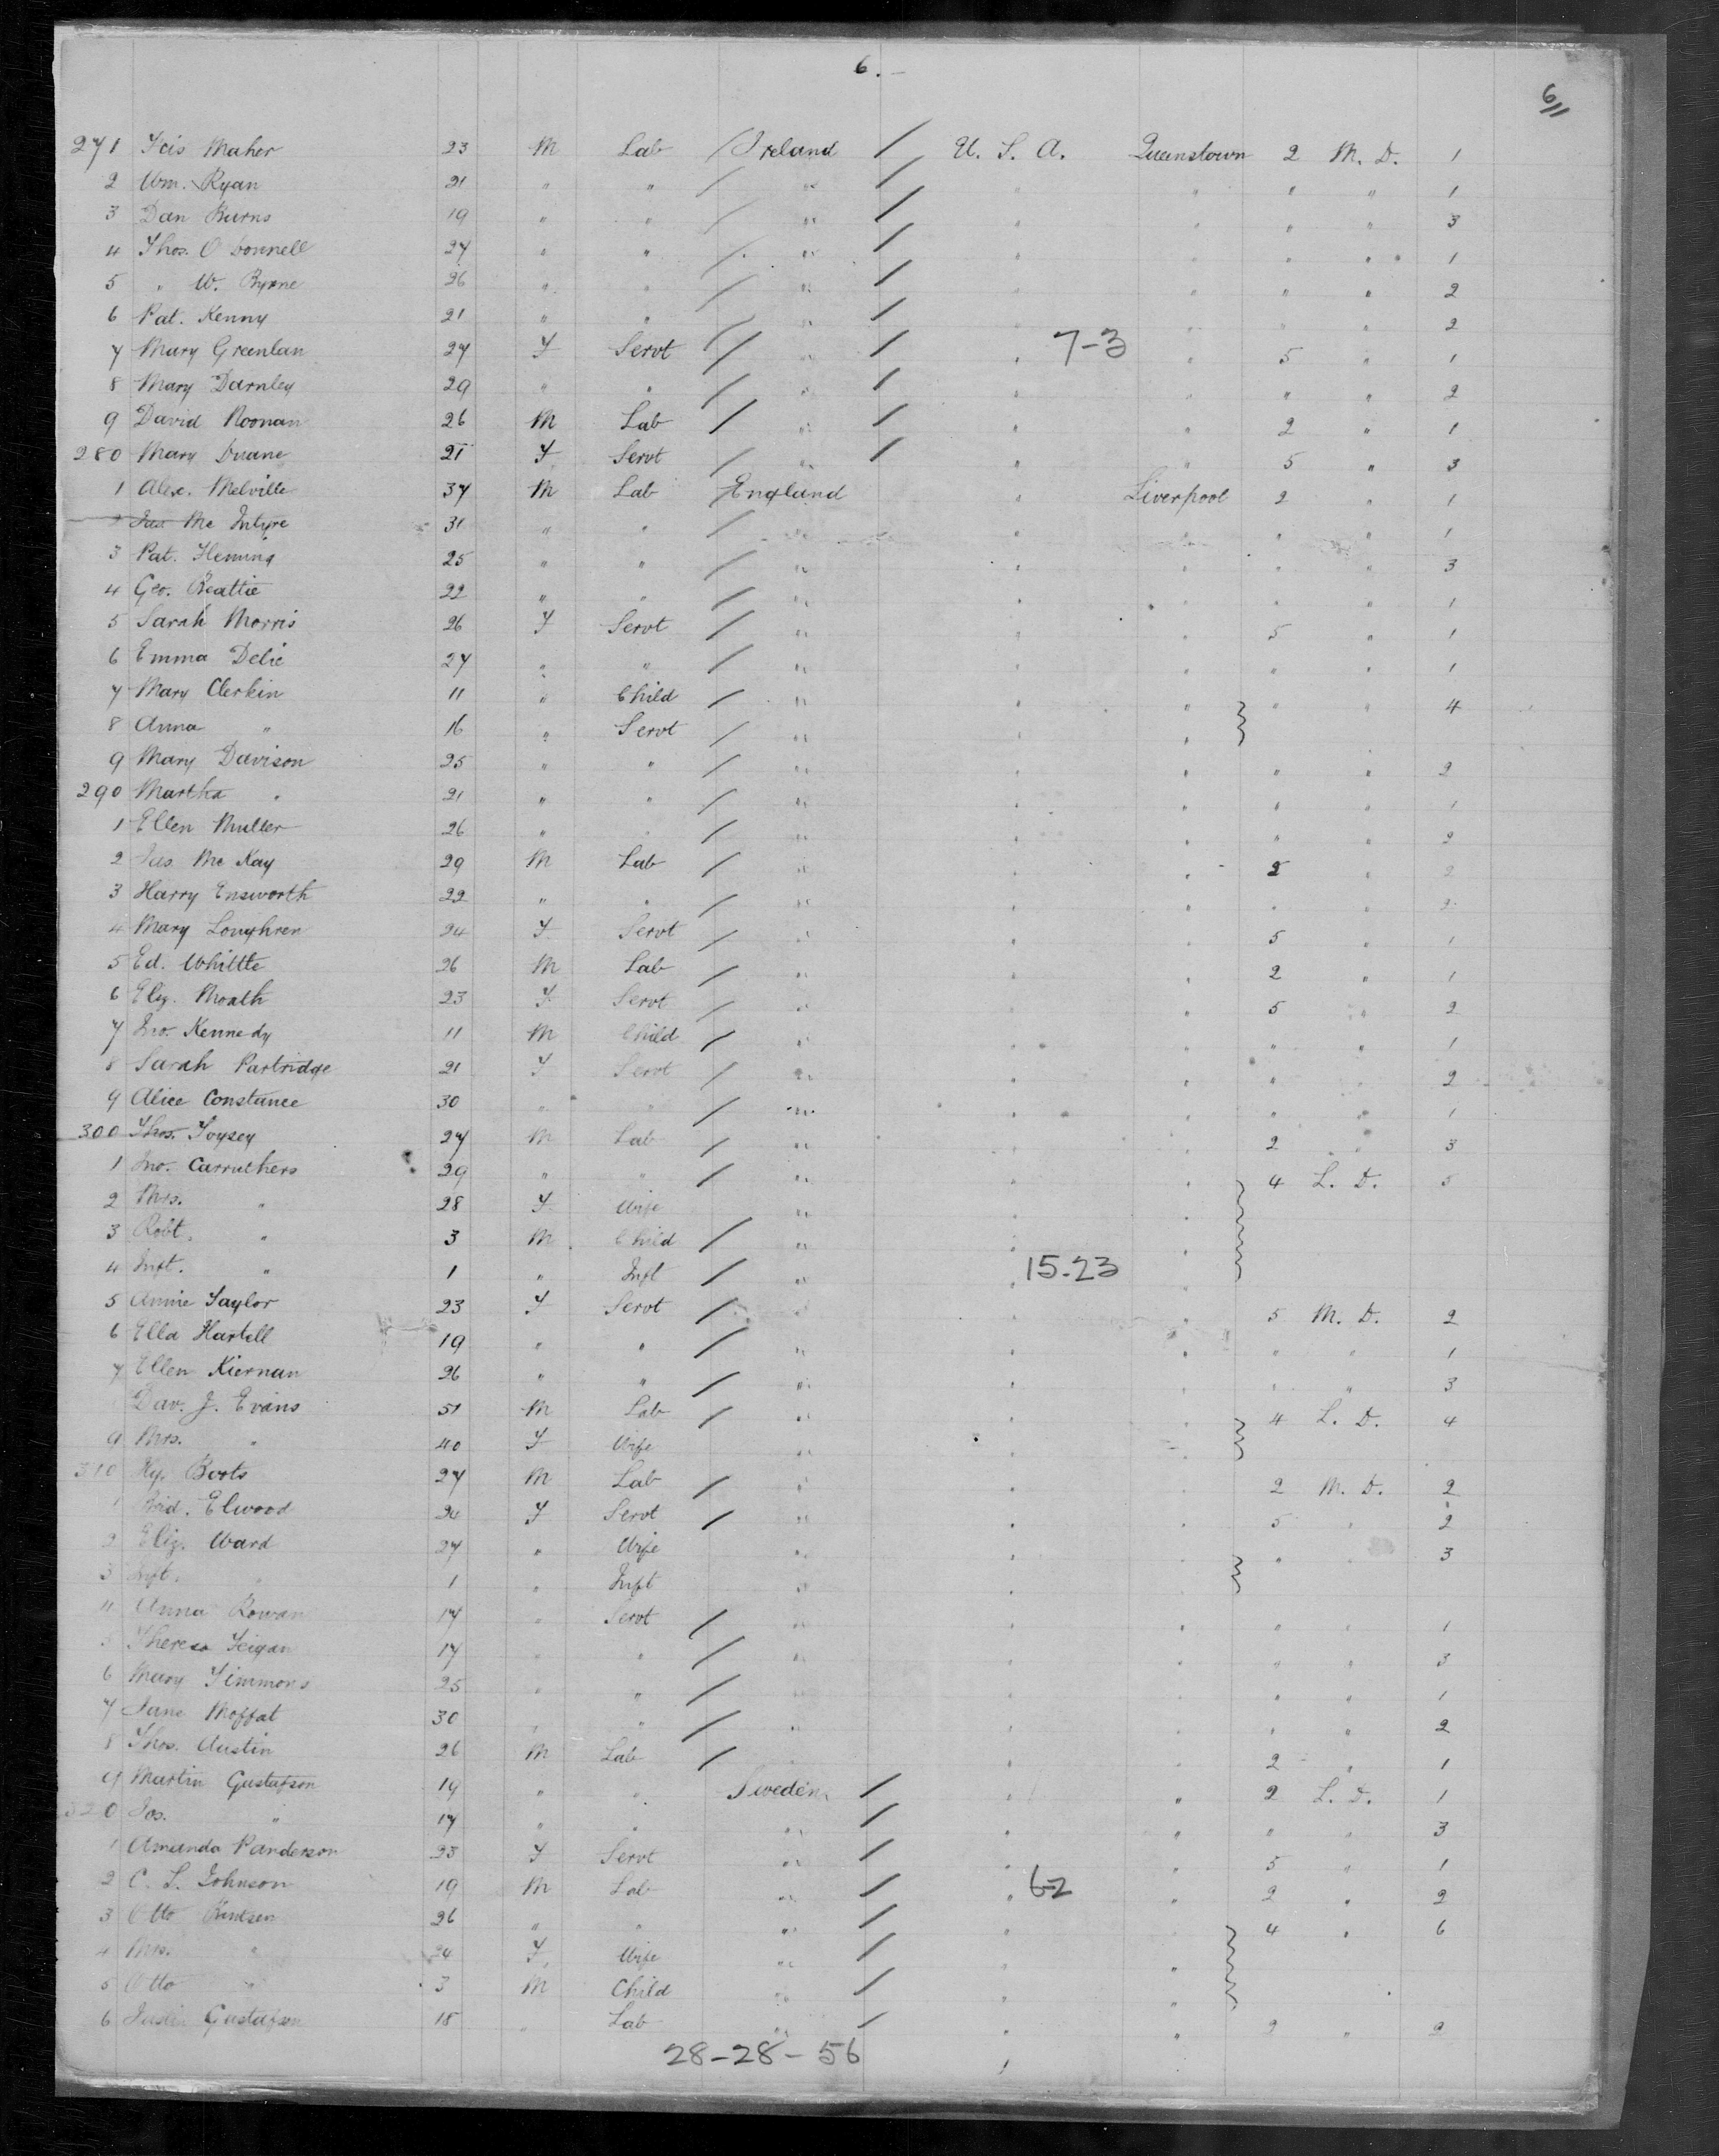 6.-
6
271 Fcis Maher 23 M Lab / Ireland / U. S. A. Queenstown 2 M. D. 1
2 Wm. Ryan 21 " " / " / " " " " 1
3 Dan Burns 19 " " / " / " " " " 3
4 Thos. O Donnell 27 " " / " / " " " " 1
5 " W. Byrne 26 " " / " / " " " " 2
6 Pat. Kenny 21 " " / " / " " " " 2
7 Mary Greenlan 27 F Servt / " / " 7-3 " 5 " 1
8 Mary Darnley 29 " " / " / " " " " 2
9 David Noonan 26 M Lab / " / " " 2 " 1
280 Mary Duane 21 F Servt / " / " " 5 " 3
1 Alex. Melville 37 M Lab / England " Liverpool 2 " 1
2 Jas Mc Intyre 31 " " / " " " " " 1
3 Pat. Fleming 25 " " / " " " " " 3
4 Geo. Beattie 22 " " / " " " " " 1
5 Sarah Morris 26 F Servt / " " " 5 " 1
6 Emma Delie 27 " " / " " " " " 1
7 Mary Clerkin 11 " Child / " " " " " 4
8 Anna " 16 " Servt / " " "
9 Mary Davison 25 " " / " " " " " 2
290 Martha " 21 " " / " " " " " 1
1 Ellen Muller 26 " " / " " " " " 2
2 Jas Mc Kay 29 M Lab / " " " 2 " 2
3 Harry Ensworth 22 " " / " " " " " 2
4 Mary Loughren 24 F Servt / " " " 5 " 1
5 Ed. Whittte 26 M Lab / " " " 2 " 1
6 Eliz. Moath 23 F Servt / " " " 5 " 2
7 Jno. Kennedy 11 M Child / " " " " " 1
8 Sarah Partridge 21 F Servt / " " " " " 2
9 Alice Constance 30 " " / " " " " " 1
300 Thos. Foysey 27 M Lab / " " " 2 " 3
1 Jno. Carruthers 29 " " / " " " 4 L. D. 5
2 Mrs. " 28 F Wife " " "
3 Robt. " 3 M Child / " " "
4 Inft. " 1 " Inft / " " 15-23
5 Annie Taylor 23 F Servt / " " " 5 M. D. 2
6 Ella Hartell 19 " " / " " " " " 1
7 Ellen Kiernan 26 " " / " " " " " 3
Dav. J. Evans 51 M Lab / " " " 4 L. D. 4
9 Mrs. " 40 F Wife " "
310 Hy. Boots 27 M Lab / " " " 2 M. D. 2
1 Brid. Elwood 24 F Servt / " " " 5 " 2
2 Eliz. Ward 27 " Wife " " " " " 3
3 Inft. " 1 " Inft " "
4 Anna Rowan 17 " Servt / " " " " " 1
5 Theresa Feigan 17 " " / " " " " " 3
6 Mary Simmons 25 " " / " " " " " 1
7 Jane Moffat 30 " " / " " " " " 2
8 Thos. Austin 26 M Lab / " " " 2 " 1
9 Martin Gustafson 19 " " Sweden / " " 2 L. D. 1
320 Jos. " 17 " " " / " " " " 3
1 Amanda Panderson 23 F Servt " / " " 5 " 1
2 C. L. Johnson 19 M Lab " / " 6-2 " 2 " 2
3 Otto 26 " " " / " " 4 " 6
4 Mrs. " 24 F Wife " / " "
5 Otto " 3 M Child " / " "
6 Gustafson 18 " Lab " / " " 2 " 2
28-28-56